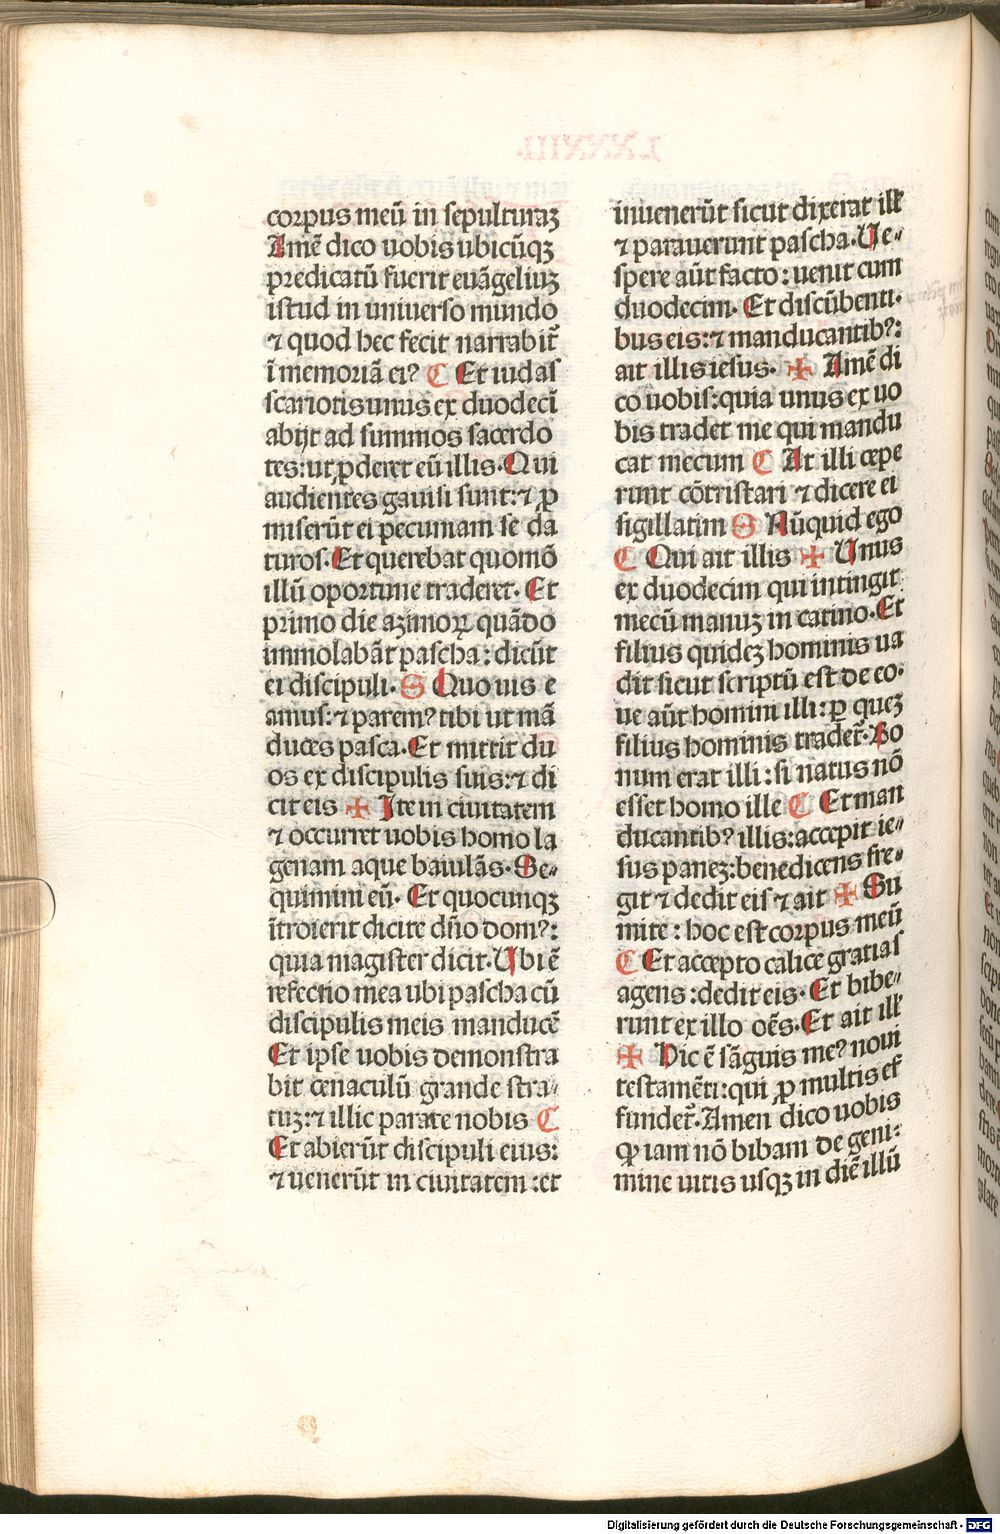 corpus meū in sepulturaꝫ
Amē dico uobis ubicūqꝫ
predicatū fuerit euāgeliuꝫ
istud in uniuerso mundo
⁊ quod hec fecit narrabit̄
ī memoriā ei? C Et iudas
scariotis unus ex duodecī
abijt ad summos sacerdo
tes: ut ꝓderet eū illis. Qui
audientes gauisi sunt: ⁊ ꝓ
miserūt ei pecuniam se da
turos. Et querebat quomō
illū oportune traderet. Et
primo die azimoꝝ quādo
immolabāt pascha: dicūt
ei discipuli. S Quo uis e
amus: ⁊ parem? tibi ut mā
duces pasca. Et mittit du
os ex discipulis suis: ⁊ di
cit eis ✠ Ite in ciuitatem
⁊ occurret uobis homo la
genam aque baiulās. Se⸗
quimini eū. Et quocunqꝫ
ītroierit dicite dn̄o dom?:
quia magister dicit. Ubi ē
refectio mea ubi pascha cū
discipulis meis manducē
Et ipse uobis demonstra
bit cenaculū grande stra⸗
tuꝫ: ⁊ illic parate nobis C
Et abierūt discipuli eius:
⁊ uenerūt in ciuitatem: et
inuenerūt sicut dixerat ill̄
⁊ parauerunt pascha. Ue⸗
spere aūt facto: uenit cum
duodecim. Et discūbenti⸗
bus eis: ⁊ manducantib?:
ait illis iesus. ✠ Amē di
co uobis: quia unus ex uo
bis tradet me qui mandu
cat mecum C At illi cepe
runt cōtristari ⁊ dicere ei
sigillatim S Nūquid ego
C Qui ait illis ✠ Unus
ex duodecim qui intingit
mecū manuꝫ in catino. Et
filius quideꝫ hominis ua
dit sicut scriptū est de eo.
ue aūt homini illi: ꝑ queꝫ
filius hominis tradet̄. Bo
num erat illi: si natus nō
esset homo ille C Et man
ducantib? illis: accepit ie⸗
sus paneꝫ: benedicens fre⸗
git ⁊ dedit eis ⁊ ait ✠ Su
mite: hoc est corpus meū
C Et accepto calice gratias
agens: dedit eis. Et bibe⸗
runt ex illo oēs. Et ait ill̄
✠ Hic ē sāguis me? noui
testamēti: qui ꝓ multis ef
fundet̄. Amen dico uobis
ꝙ iam nō bibam de geni⸗
mine uitis usqꝫ in diē illū
Digitalisierung gefördert durch die Deutsche Forschungsgemeinschaft - DFG